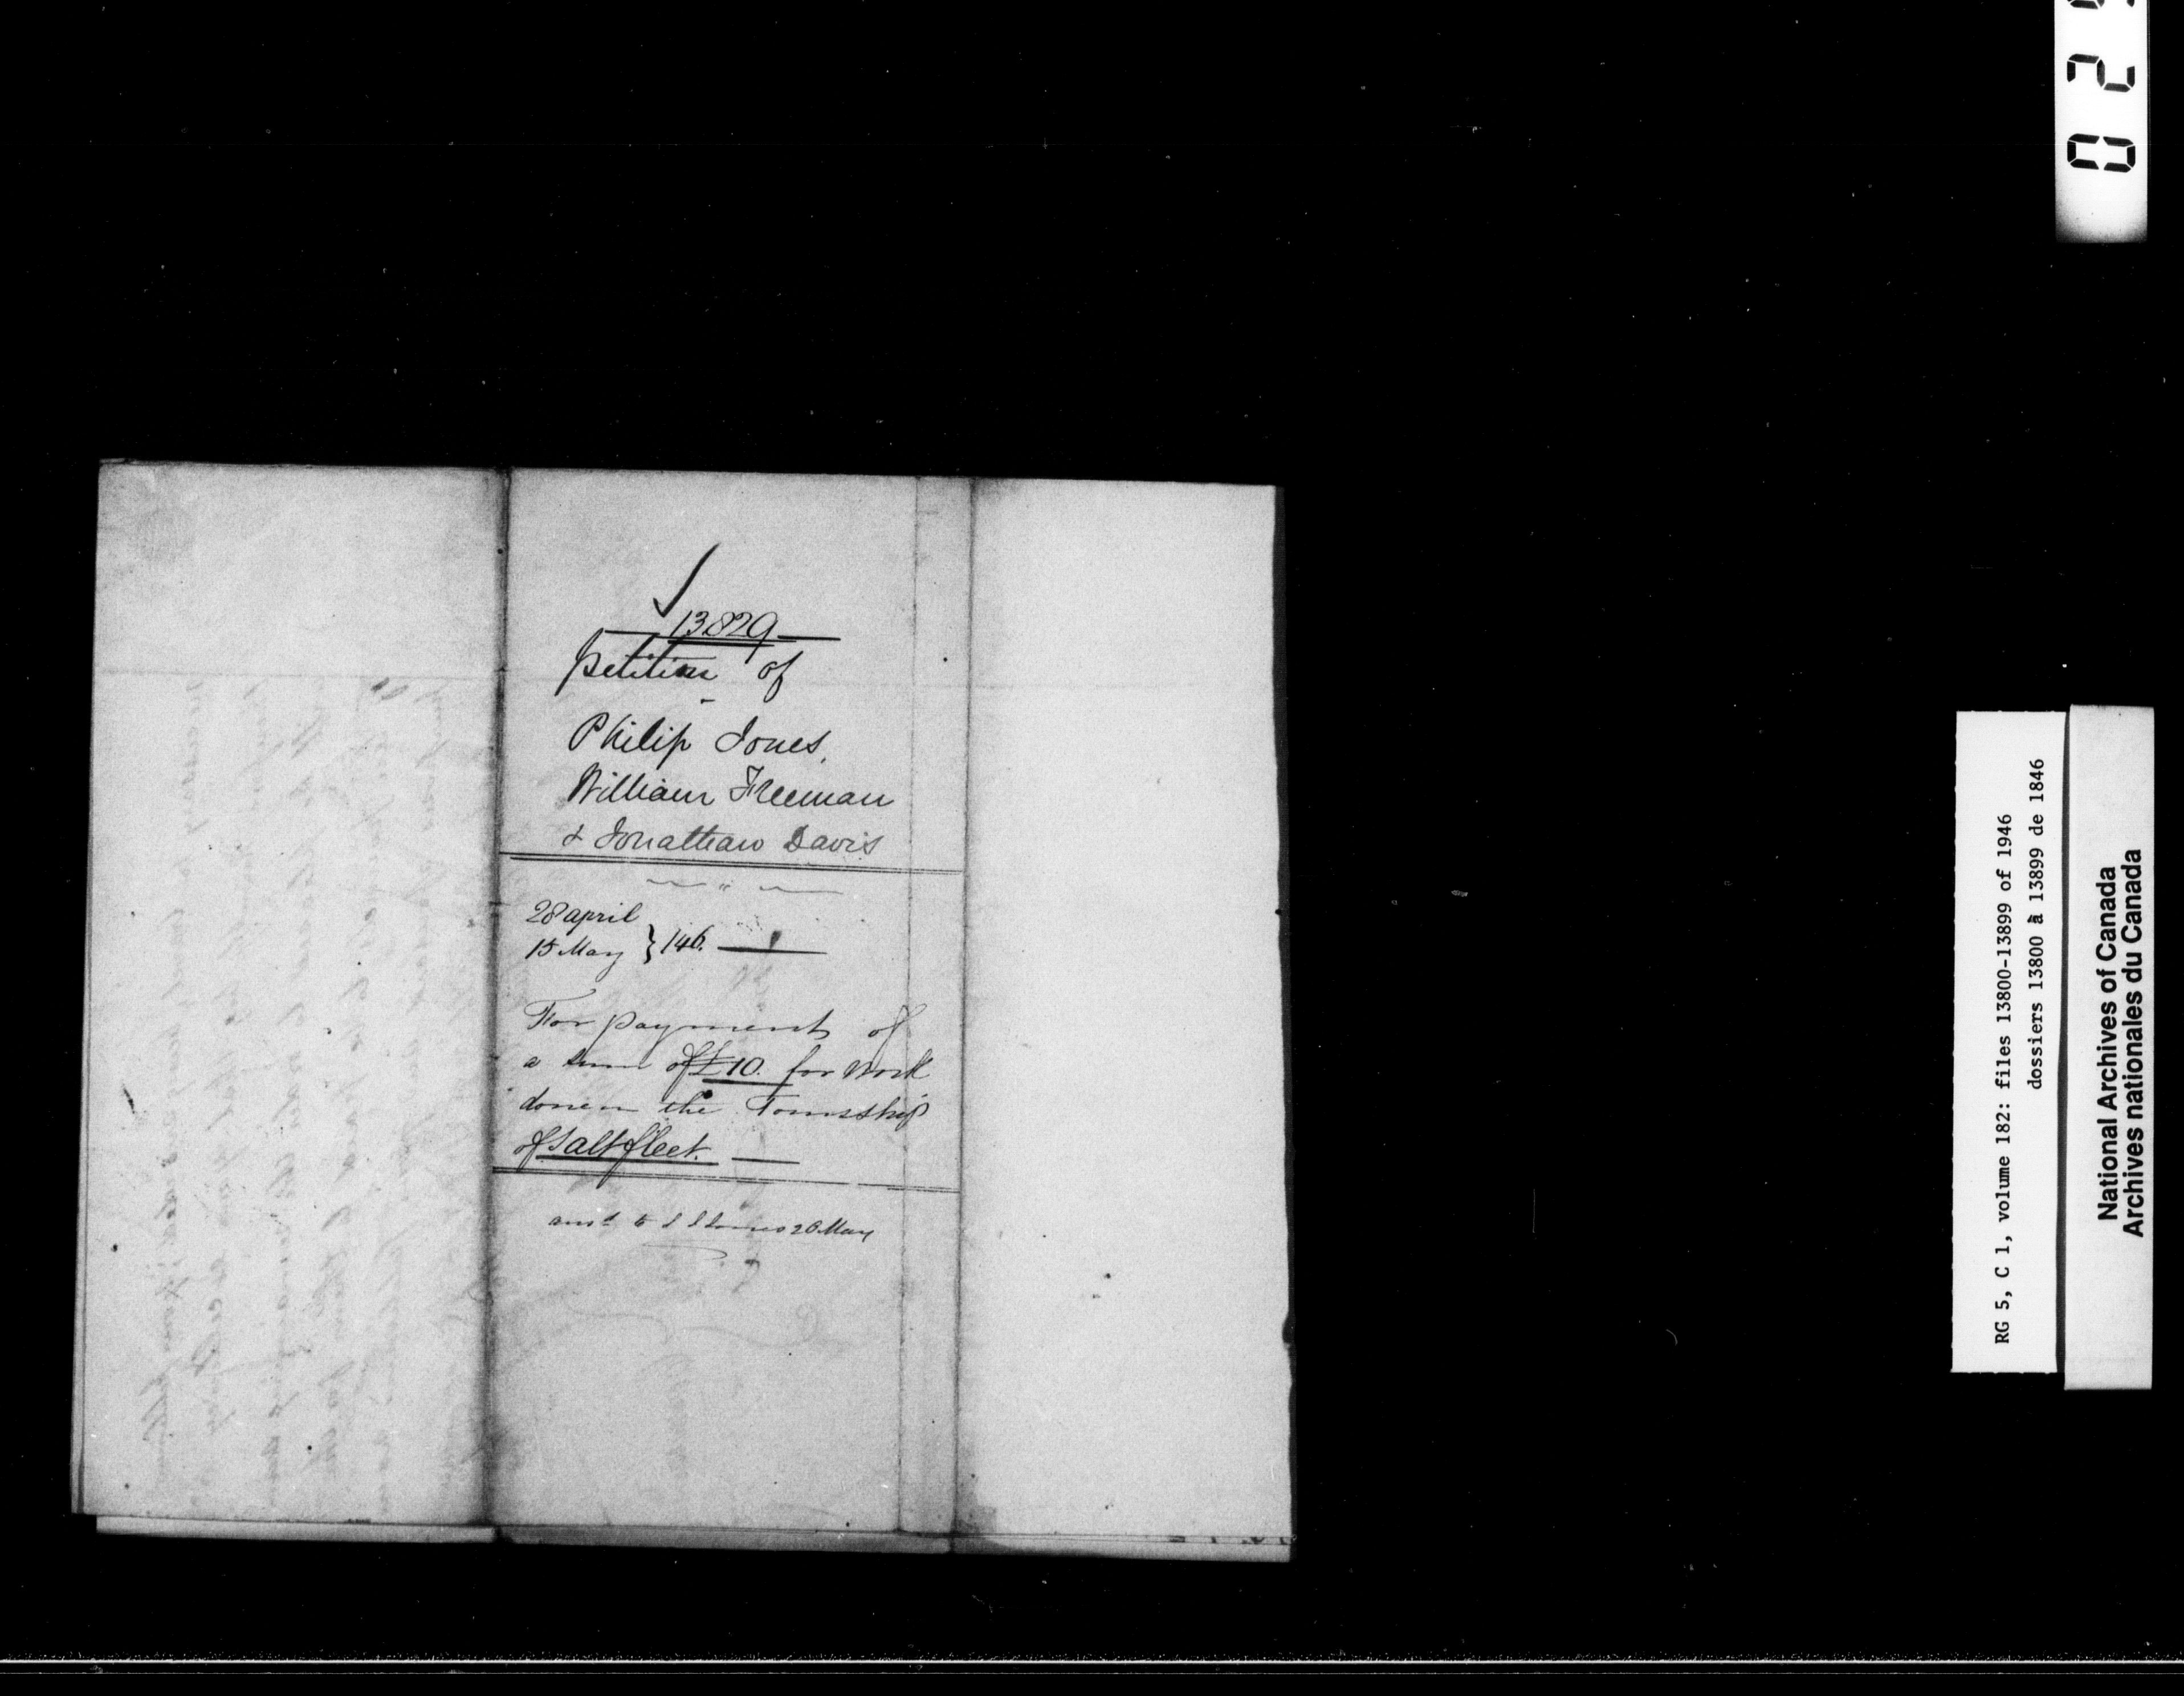 13829
Petition of
Philip Jones,
William Freeman
& Jonathan Davis
28 april
15 May } 146.
For payment of
a sum of £10. for work
done in the Township
of Saltfleet.
ansd to 26 May
RG 5, C 1, volume 182: files 13800-13899 of 1946
dossiers 13800 à 13899 de 1846
National Archives of Canada
Archives nationales du Canada